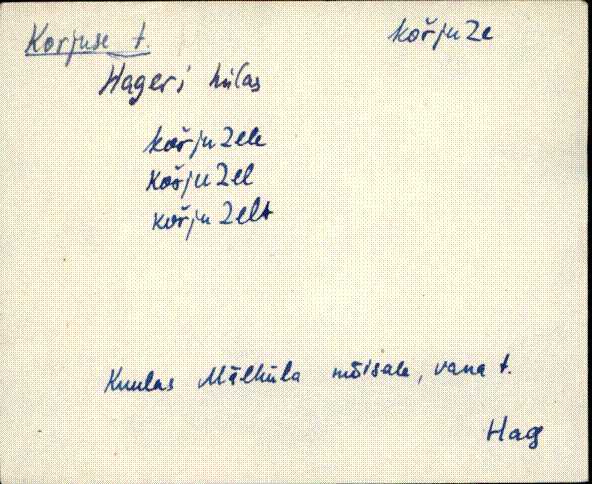 Korjuse t.
kořjuZe
Hageri külas
kořjuZele
kořjuZel
kořjuZelt
Kuulas Mälküla mõisale, vana t.
Hag